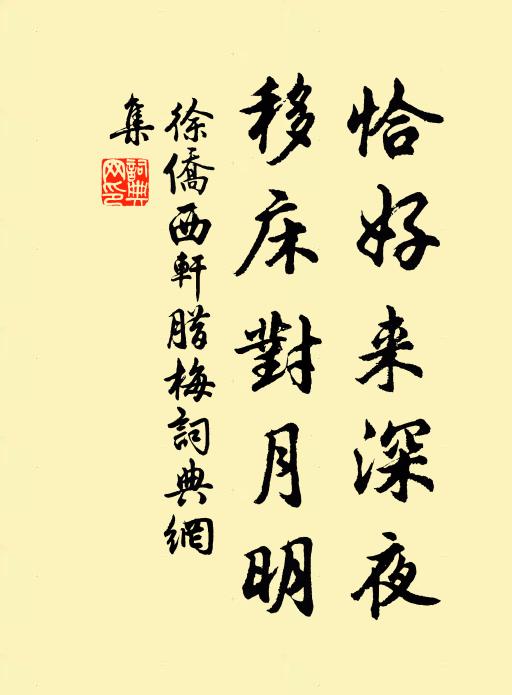 恰好来深夜
移床對月明
徐僑西軒腊梅詞典網
集
詞典網印